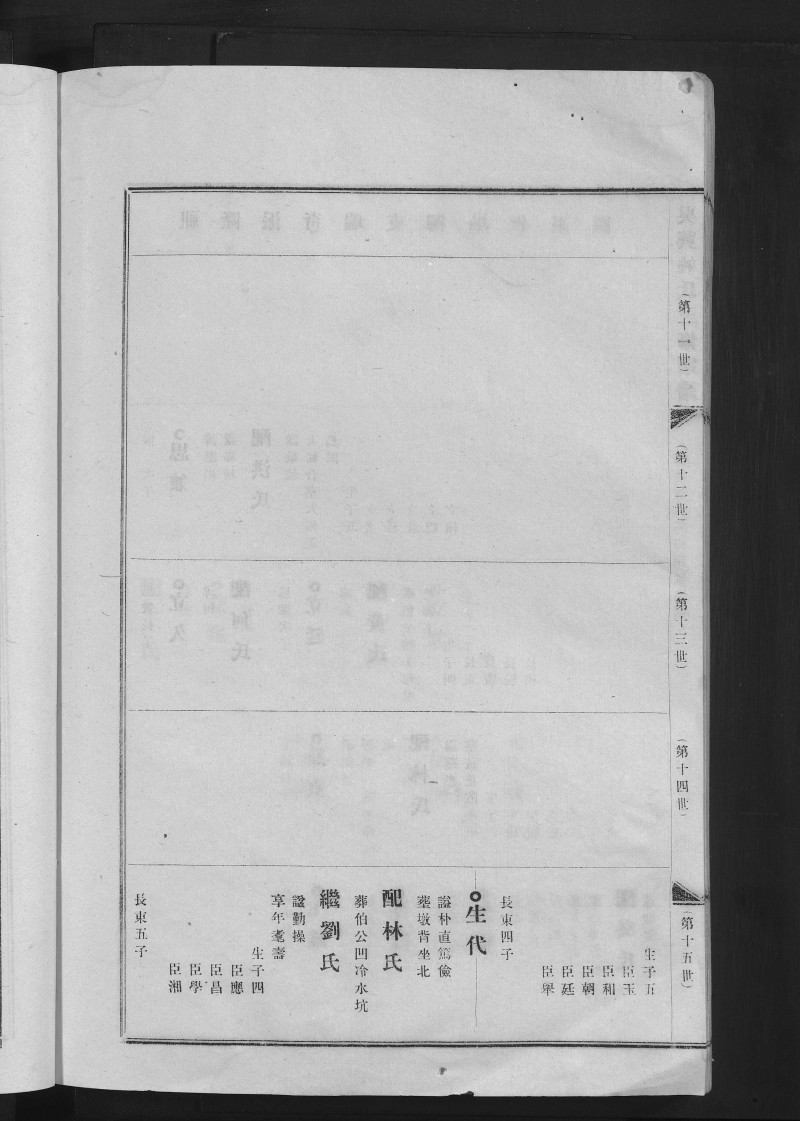 （第十一世）
（第十二世）
（第十三世）
（第十四世）
（第十五世）
生子五
臣玉
臣和
臣朝
臣廷
臣舉
長東四子
生代
諡朴直篤儉
塟墩背坐北
配林氏
葬伯公凹冷水坑
繼劉氏
諡勤操
享年耄壽
生子四
臣應
臣昌
臣學
臣湘
長東五子